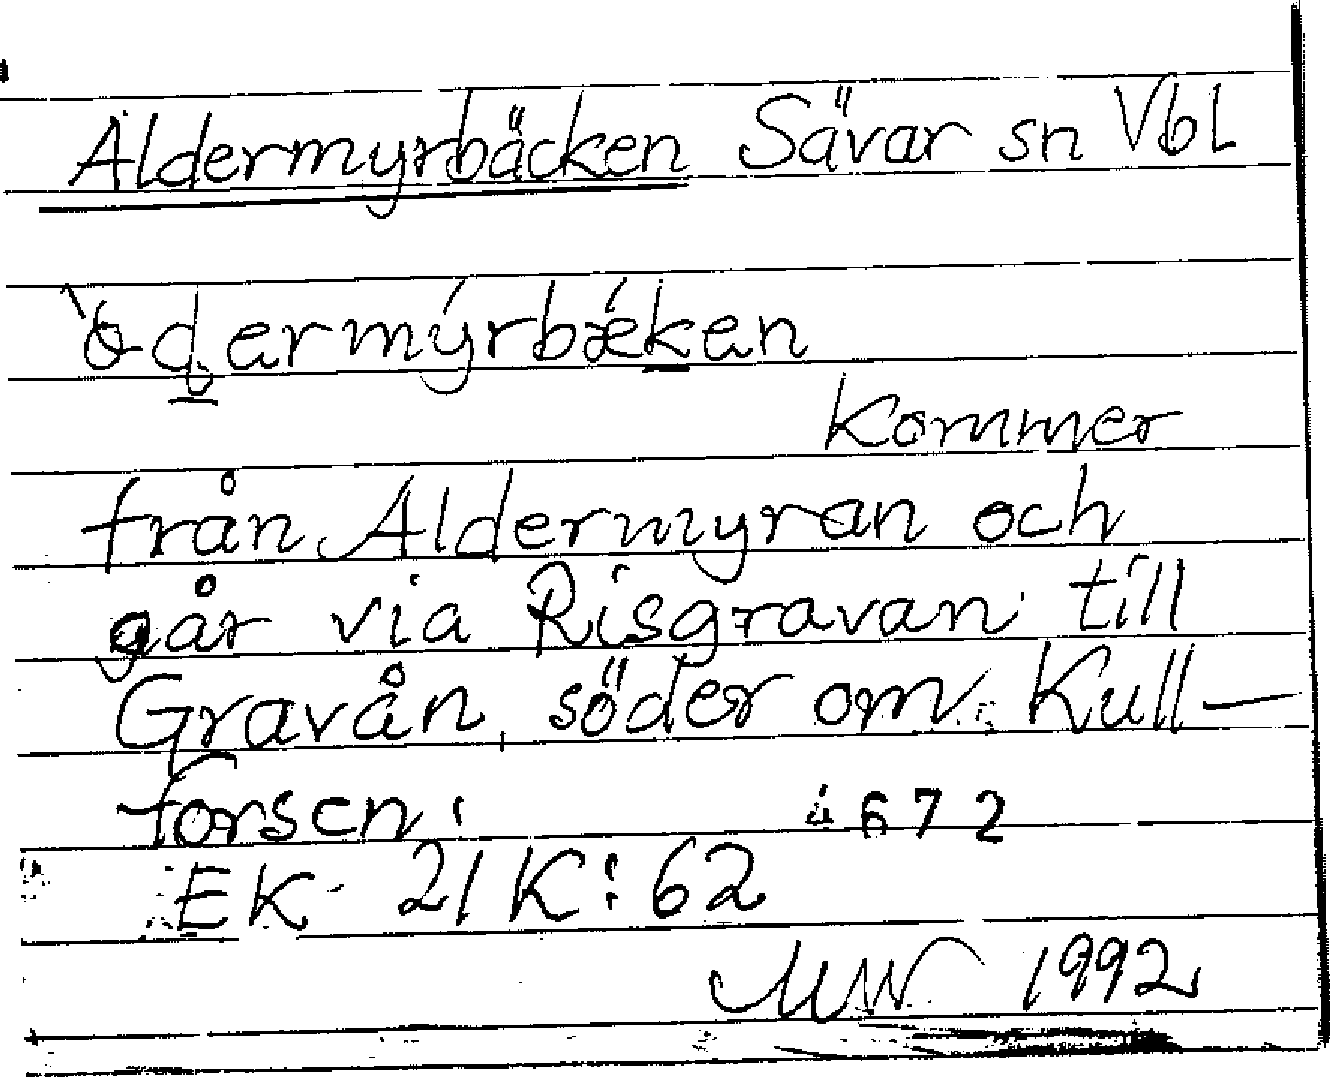 Aldermyrbäcken Sävar sn Vbl
kommer
från Aldermyran och
går via Risgravan till
Gravån, söder om Kull-
forsen.
4672
EK 21K:62
MW 1992